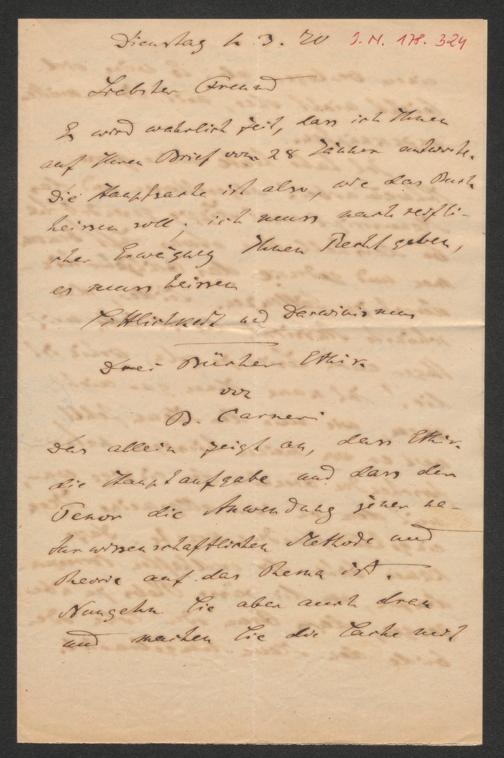 Dienstag 1. 3. 70 I.N. 178.324
Liebster Freund
Es wird wahrlich Zeit, dass ich Ihnen
auf Ihren Brief vom 28 Jänner antworte.
Die Hauptsache ist also, wie das Buch
heissen soll; ich muss nach reifli-
cher Erwägung Ihnen Recht geben,
es muss heissen
Sittlichkeit und Darwinismus
Drei Bücher Ethik
von
B. Carneri
Das allein zeigt an, dass Ethik
die Hauptaufgabe und dass der
Tenor die Anwendung jener na-
turwissenschaftlichen Methode und
Theorie auf das Thema ist.
Nun gehn Sie aber auch dran
und machen Sie die Sache nicht